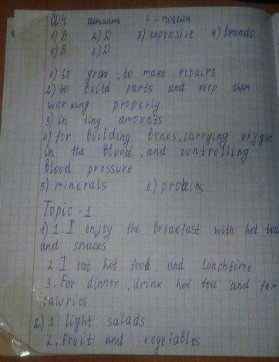 4-
1) B 2) D 3) expensive 4) brands
5) B 6) D
1) to grow, to make repairs
2) to build parts and keep them
working properly
3) in tiny amounts
4) for building bones, carrying oxygen
in the blood, and controlling
blood pressure
5) minerals 6) proteins
Topic - 1
1) 1. I enjoy the breakfast with hot tea
and snacks
2. I eat hot food and lunchtime
3. For dinner, drink hot tea and for
calories
2) 1. light salads
2. fruit and vegetables